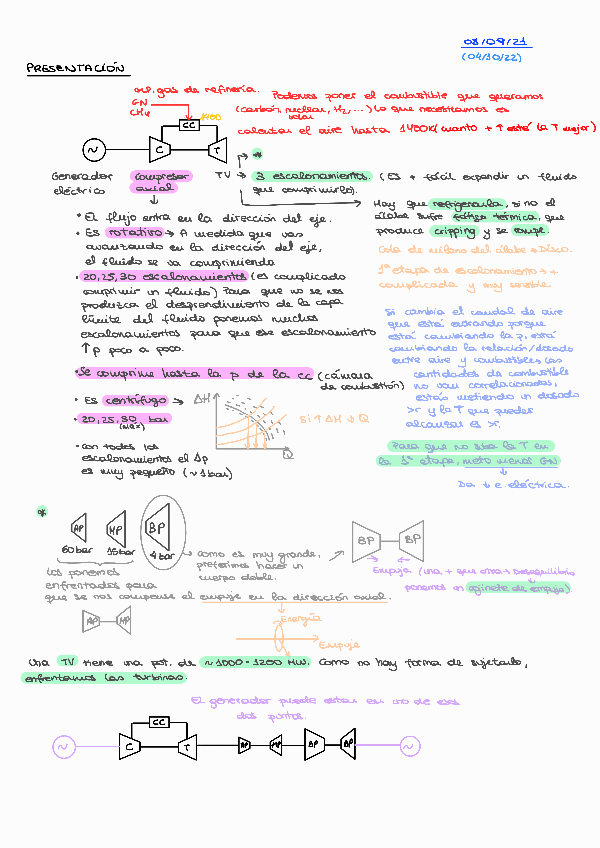 03/09/21
(04/30/22)
PRESENTACIÓN
ej. gas de refinería.
GN
CH4
Podemos poner el combustible que queramos
(carbón, nuclear, H2, ...) Lo que necesitamos es
solar
calentar el aire hasta 1400K (cuanto + ↑ esté la T mejor)
CC
1400
~
C
T
*
Generador
eléctrico
Compresor
axial
TV → 3 escalonamientos. (Es + fácil expandir un fluido
que comprimirlo).
Hay que refrigerarla, si no el
álabe sufre fatiga térmica, que
produce cripping y se rompe.
Cola de milano del álabe → Disco.
1ª etapa de escalonamiento → +
complicada y muy sensible.
• El flujo entra en la dirección del eje.
• Es rotativo → A medida que vas
avanzando en la dirección del eje,
el fluido se va comprimiendo
• 20, 25, 30 escalonamientos (es complicado
comprimir un fluido) Para que no se nos
produzca el desprendimiento de la capa
límite del fluido ponemos muchos
escalonamientos para que ese escalonamiento
↑p poco a poco.
Si cambia el caudal de aire
que está entrando porque
está cambiando la p, está
cambiando la relación/dosado
entre aire y combustibles (las
cantidades de combustible
no van correlacionadas,
estás metiendo un dosado
>r y la T que puedes
alcanzar es >r.
• Se comprime hasta la p de la cc (cámara
de combustión)
• Es centrífugo
• 20, 25, 30 bar
(máx)
• Con todos los
escalonamientos el Δp
es muy pequeño (~1bar)
ΔH
Q
Si ↑ ΔH ↓ Q
Para que no suba la T en
la 1ª etapa, meto menos GN
Da ↓ e. eléctrica.
*
AP
MP
BP
60 bar
15 bar
4 bar
Como es muy grande,
preferimos hacer un
cuerpo doble.
BP
BP
Empuja (una + que otra → Desequilibrio
ponemos un cojinete de empuje).
Los ponemos
enfrentados para
que se nos compense el empuje en la dirección axial.
AP
MP
Energía
Empuje
Una TV tiene una pot. de ~1000-1200 MW. Como no hay forma de sujetarlo,
enfrentamos las turbinas.
El generador puede estar en uno de esos
dos puntos.
~
C
CC
T
AP
MP
BP
BP
~